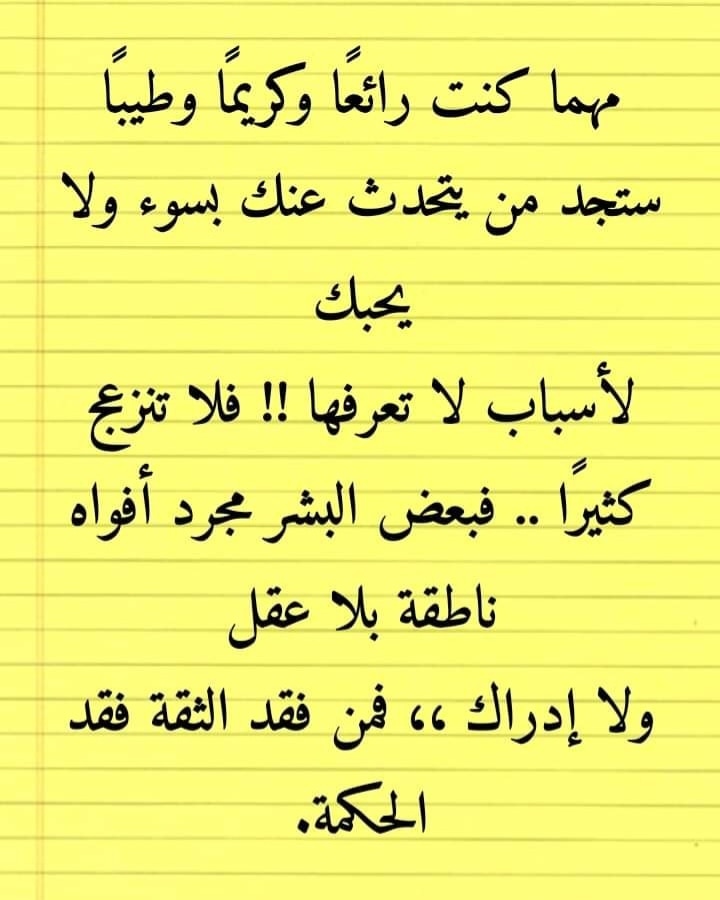 مهما كنت رائعًا وكريمًا وطيبًا
ستجد من يتحدث عنك بسوء ولا
يحبك
لأسباب لا تعرفها !! فلا تنزعج
كثيرًا .. فبعض البشر مجرد أفواه
ناطقة بلا عقل
ولا إدراك ،، فمن فقد الثقة فقد
الحكمة.